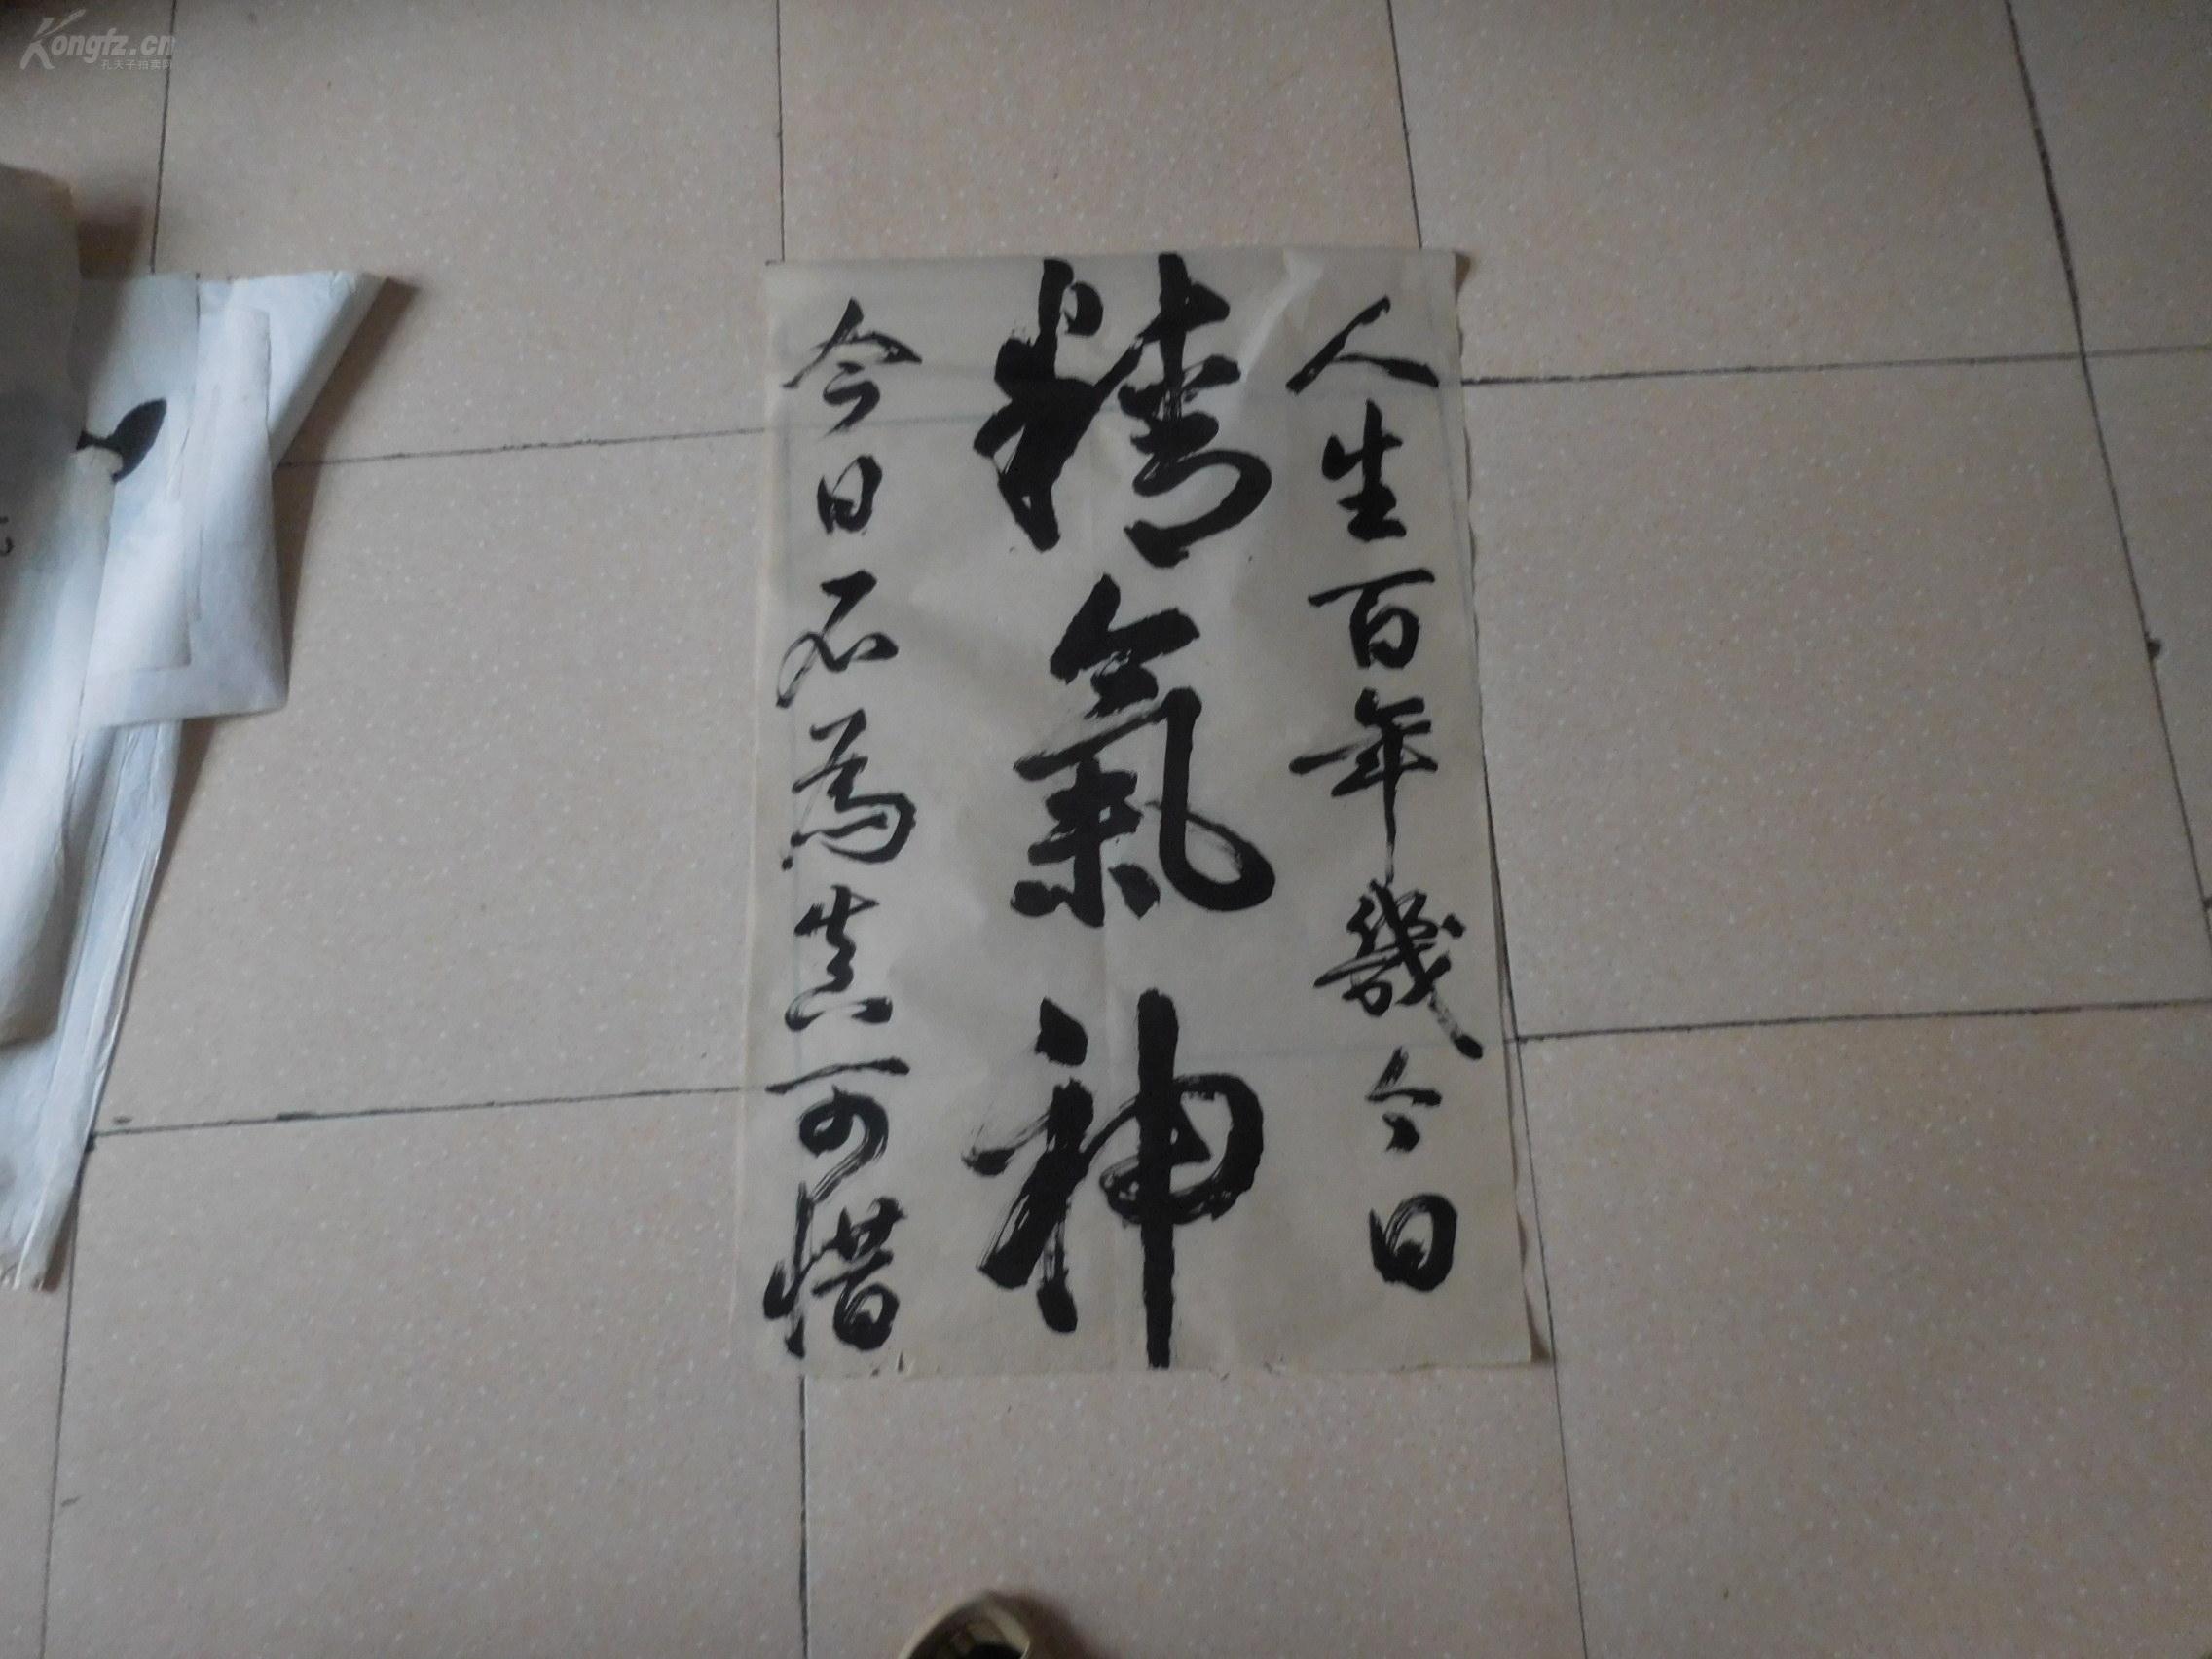 Kongfz.cn
孔夫子拍卖网
人生百年幾今日
精氣神
今日不為真可惜